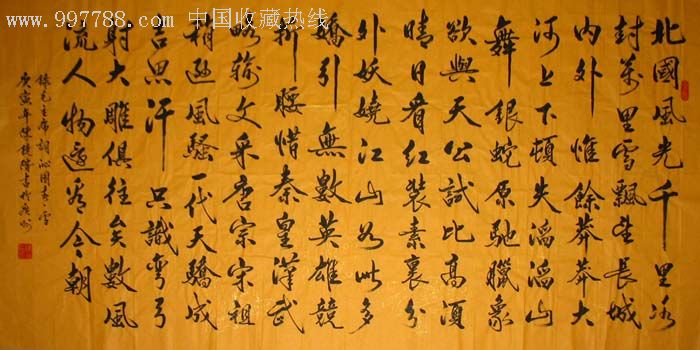 www.997788.com 中国收藏热线
北國風光千里冰
封萬里雪飄望長城
內外惟餘莽莽大
河上下頓失滔滔山
舞銀蛇原馳臘象
欲與天公試比高須
晴日看紅裝素裹分
外妖嬈江山如此多
嬌引無數英雄競
折腰惜秦皇漢武
略輸文采唐宗宋祖
稍遜風騷一代天驕成
吉思汗只識彎弓
射大雕俱往矣數風
流人物還看今朝
錄毛主席詞沁園春雪
庚寅年陳書於廣州